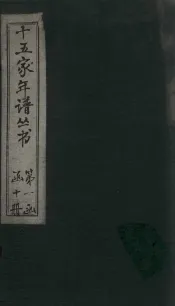 十五家年谱丛书
第一函
函十册